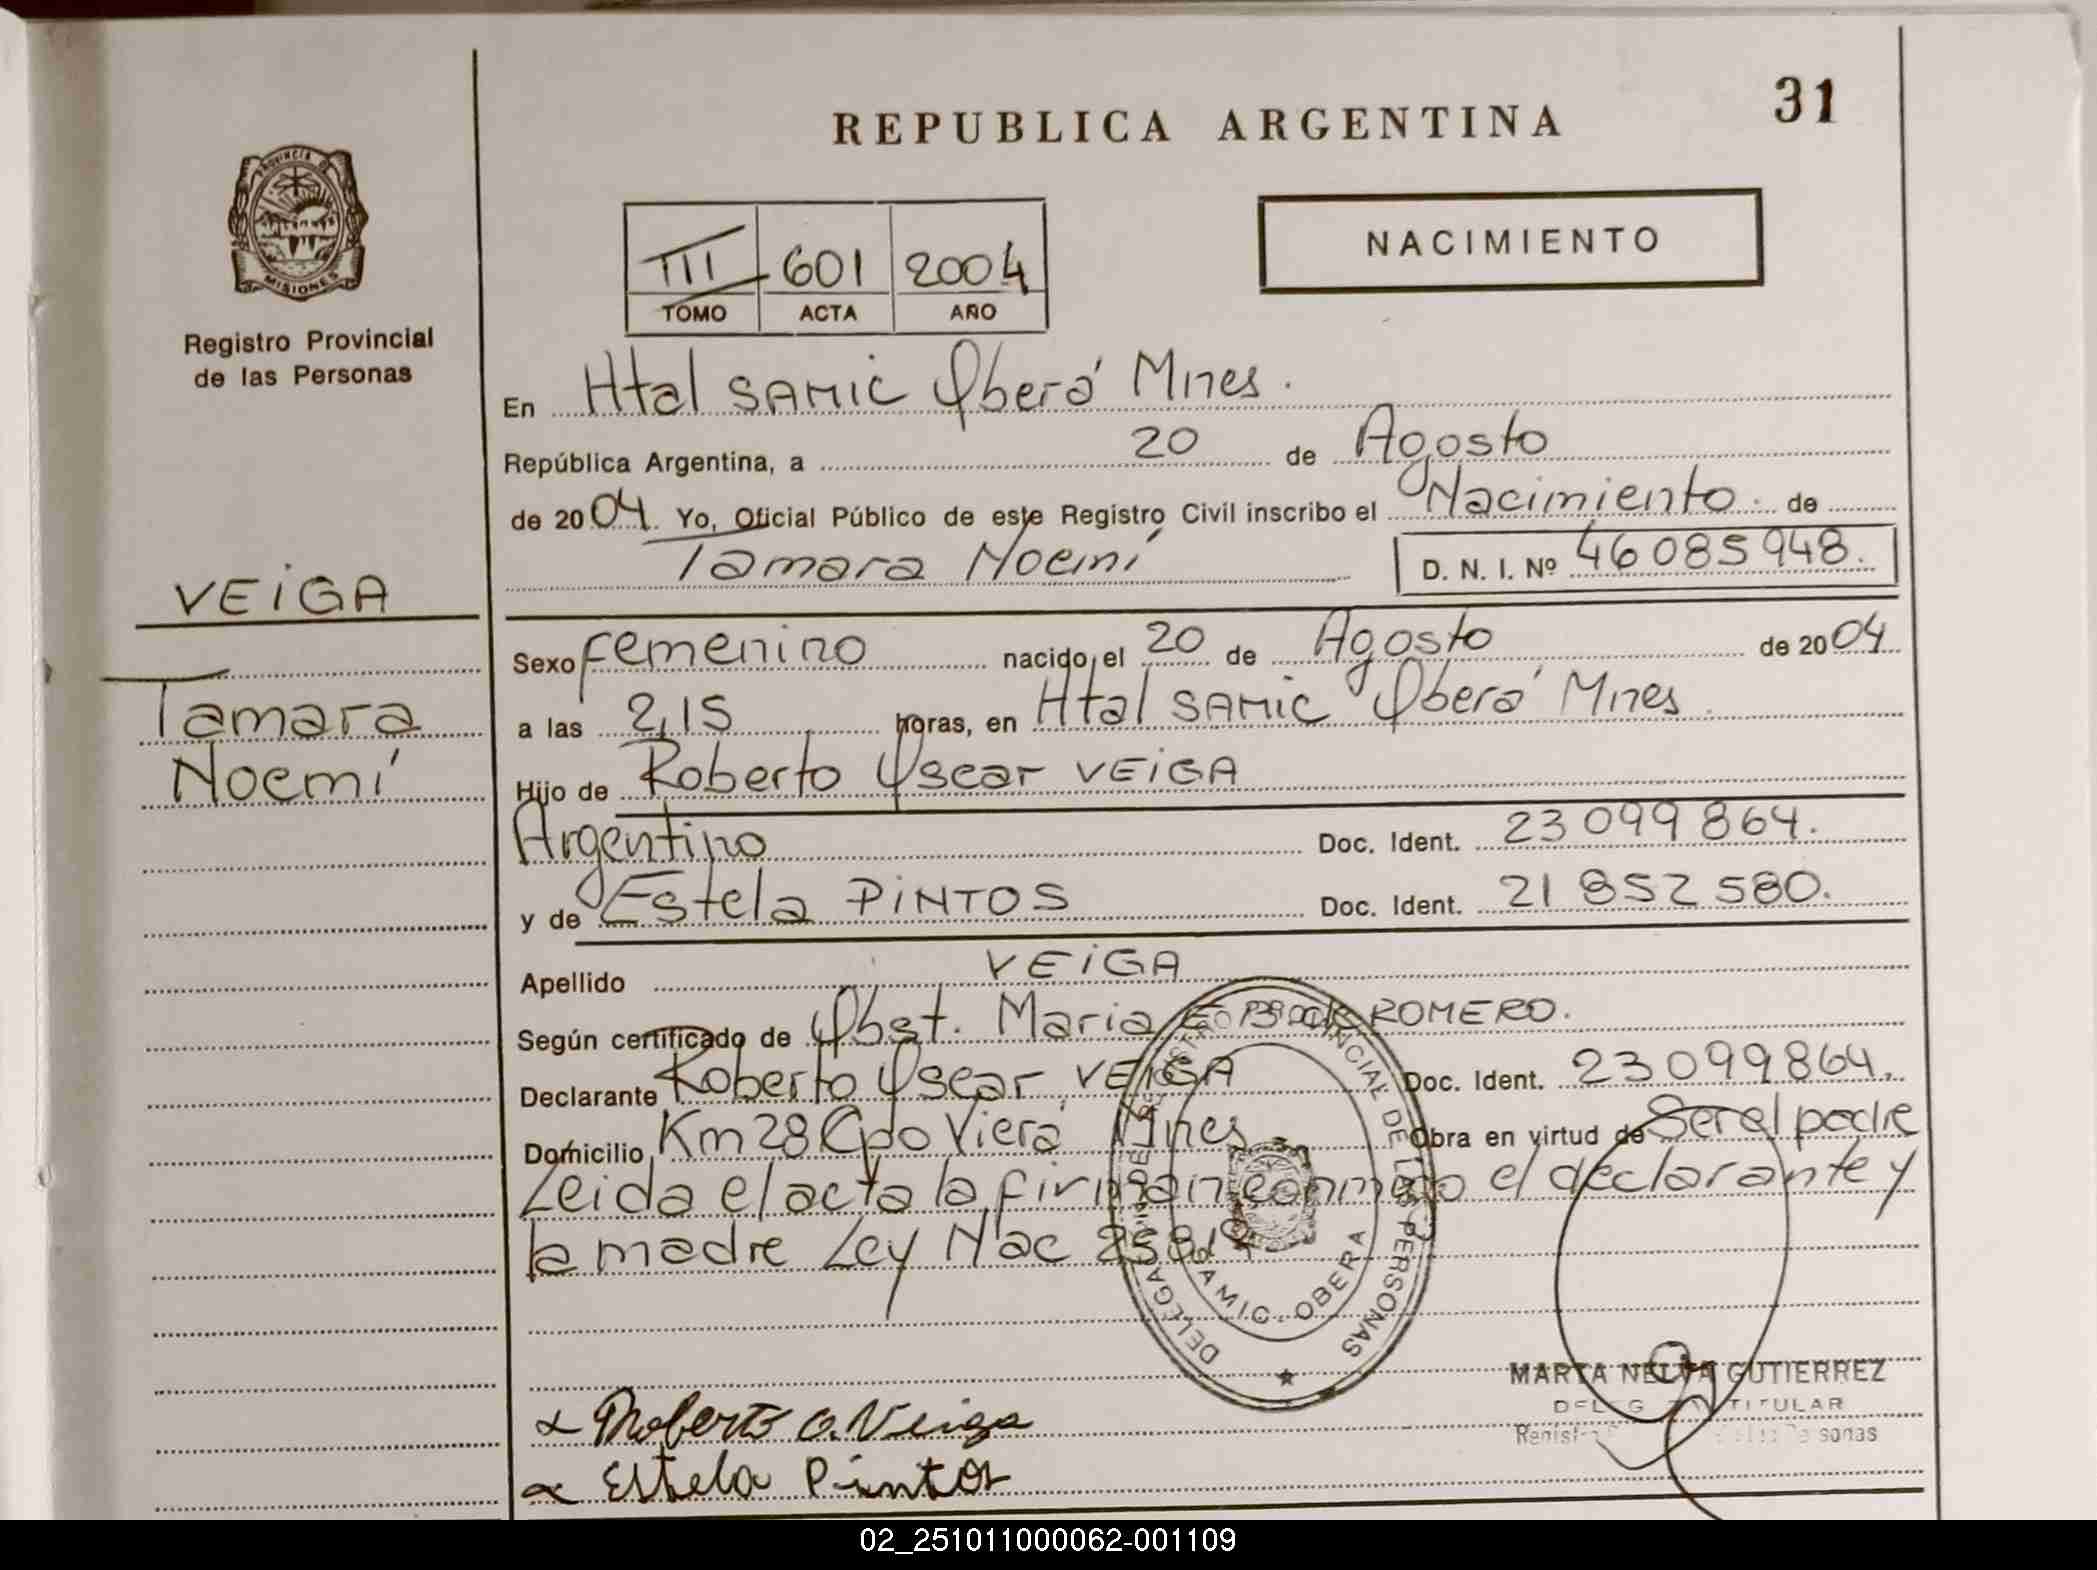 REPUBLICA ARGENTINA
31
PROVINCIA DE
MISIONES
Registro Provincial
de las Personas
III 601 2004
TOMO ACTA AÑO
NACIMIENTO
En Htal SAMIC Oberá Mnes.
República Argentina, a 20 de Agosto
de 2004. Yo, Oficial Público de este Registro Civil inscribo el Nacimiento. de
Tamara Noemí
D. N. I. Nº 46085948.
VEIGA
Tamara
Noemí
Sexo femenino nacido el 20 de Agosto de 2004
a las 2,15 horas, en Htal SAMIC Oberá Mnes.
Hijo de Roberto Oscar VEIGA
Argentino Doc. Ident. 23099864.
y de Estela PINTOS Doc. Ident. 21852580.
Apellido VEIGA
Según certificado de Obst. Maria ROMERO.
Declarante Roberto Oscar VEIGA Doc. Ident. 23099864.
Domicilio Km 28 Cpo Vierá Mnes Obra en virtud de Ser el padre
Leida el acta la firman conmigo el declarante y
la madre Ley Nac
PROVINCIAL DE LAS PERSONAS
SAMIC. OBERA
Roberto O. Veiga
Estela Pintos
MARTA NELVA GUTIERREZ
TITULAR
02_251011000062-001109